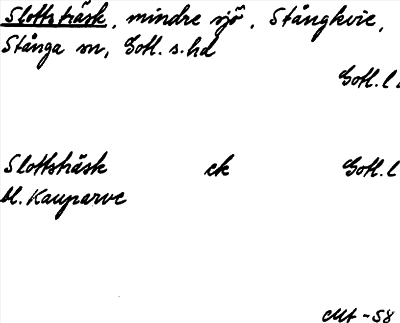 Slottsträsk, mindre sjö, Stångkvie,
Stånga sn, Gotl. s. hd
Gotl. l
Slottsträsk ck Gotl. l
bl. Kauparve
-58